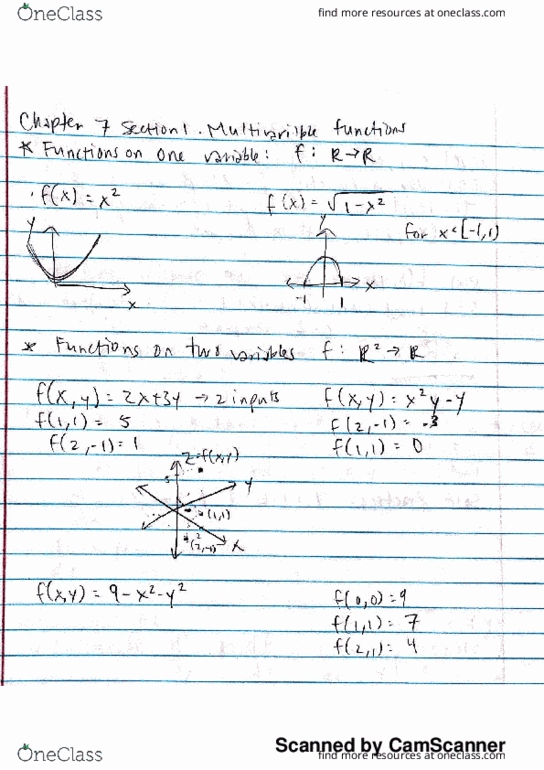 OneClass
find more resources at oneclass.com
Chapter 7 Section 1. Multivarible functions
* Functions on one variable: f: R→R
· f(x) = x²
f(x) = √1-x²
for x ε [-1,1)
y
x
y
x
-1
1
* Functions on two variables f: R² → R
f(x,y) = 2x+3y → 2 inputs
f(x,y) = x²y-y
f(1,1) = 5
f(2,-1) = -3
f(2,-1) = 1
f(1,1) = 0
z=f(x,y)
5
y
(1,1)
(2,-1)
x
f(x,y) = 9-x²-y²
f(0,0) = 9
f(1,1) = 7
f(2,1) = 4
Scanned by CamScanner
OneClass
find more resources at oneclass.com